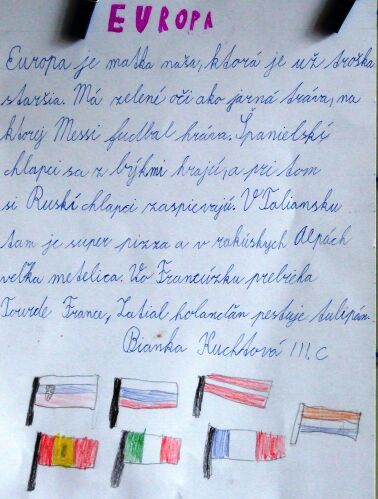 EUROPA
Europa je matka naša, ktorá je už troška
staršia. Má zelené oči ako jarná tráva, na
ktorej Messi fudbal hráva. Španielskí
chlapci sa z býkmi hrajú, a pri tom
si Ruskí chlapci zaspievajú. V Taliansku
tam je super pizza a v rakúskych Alpách
veľka metelica. Vo Francúzku prebieha
Tourde France, Zatiaľ holanďan pestuje tulipán.
Bianka Kuchtová III. C